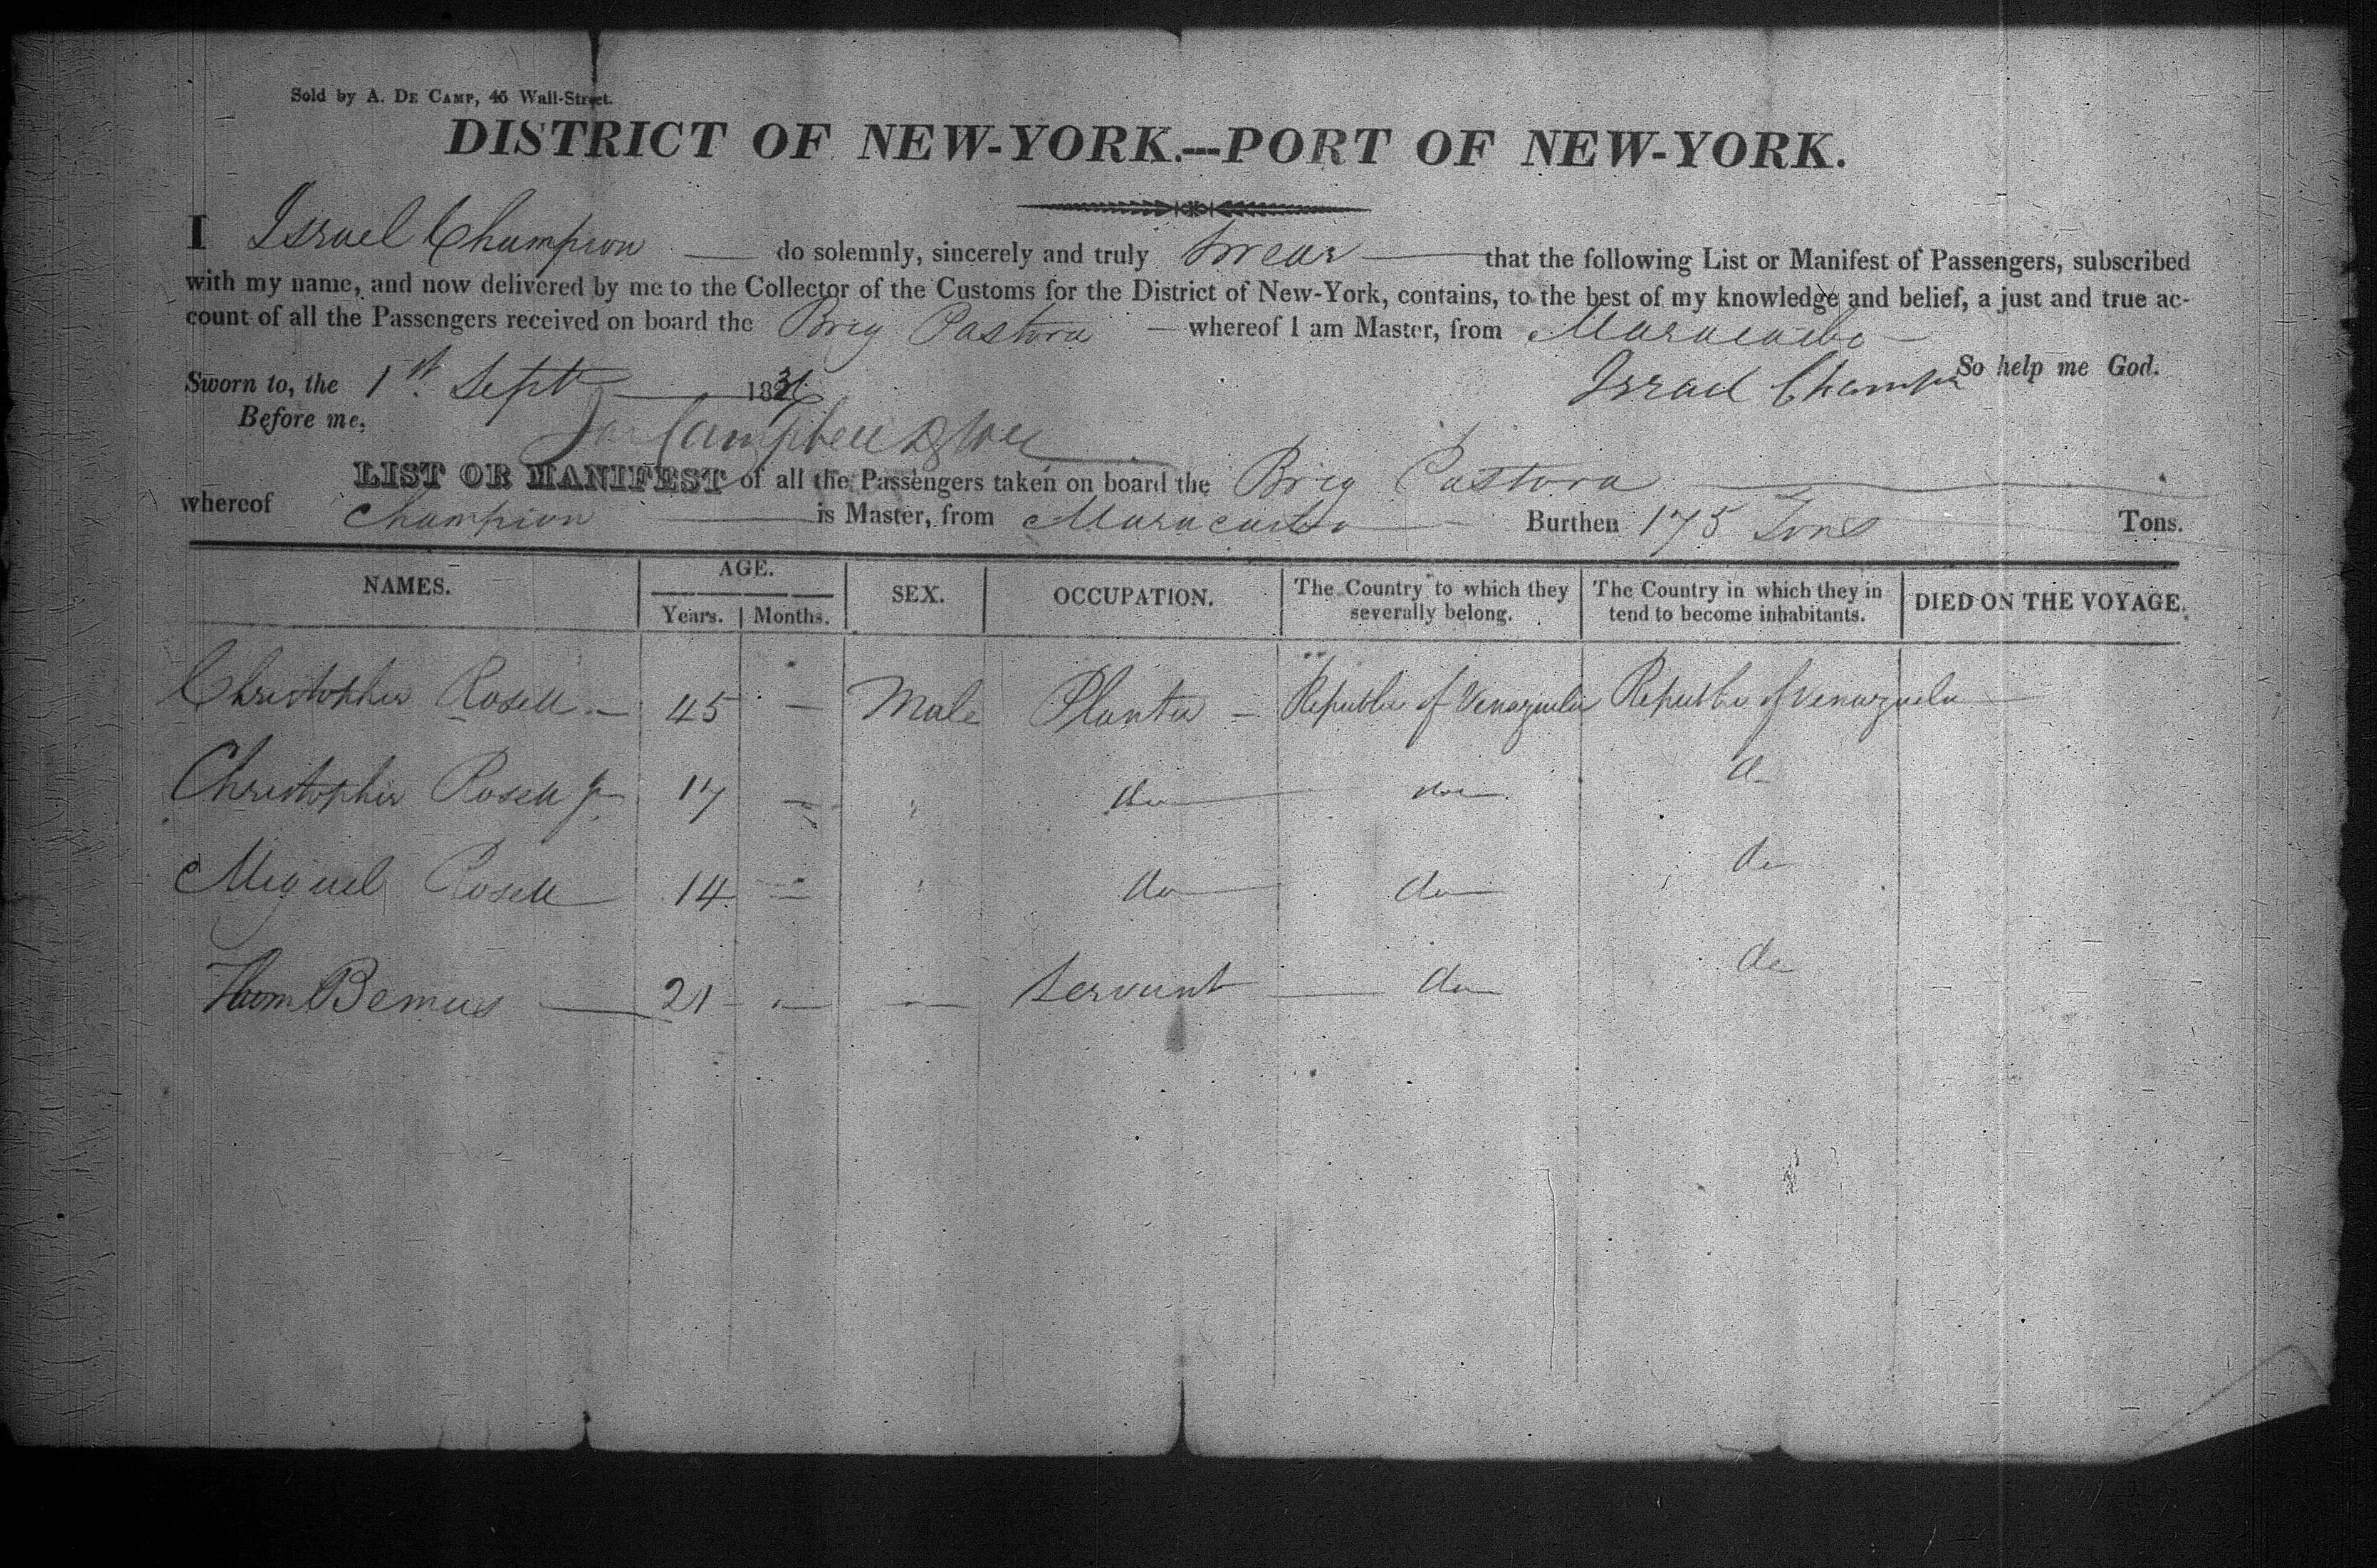 Sold by A. DE CAMP, 45 Wall-Street.
DISTRICT OF NEW-YORK.---PORT OF NEW-YORK.
I Israel Champion do solemnly, sincerely and truly Swear that the following List or Manifest of Passengers, subscribed
with my name, and now delivered by me to the Collector of the Customs for the District of New-York, contains, to the best of my knowledge and belief, a just and true ac-
count of all the Passengers received on board the Brig Pastora whereof I am Master, from Maracaibo
So help me God.
Sworn to, the 1st Sept 18 Israel Champion
Before me,
Campbell
LIST OR MANIFEST of all the Passengers taken on board the Brig Pastora
whereof Champion is Master, from Maracaibo Burthen 175 Tons Tons.
NAMES. AGE. SEX. OCCUPATION. The Country to which they severally belong. The Country in which they in tend to become inhabitants. DIED ON THE VOYAGE.
Years. Months.
Christopher Rosell 45 — Male Planter — Republic of Venazuela Republic of Venazuela —
Christopher Rosell Jr 17 — " do do do
Miguel Rosell 14 — " do do do
Bemus 21 — — Servant do do